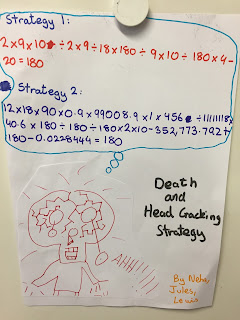 Strategy 1:
2×9×10÷2×9÷18×180÷9×10÷180×4-
20=180
Strategy 2:
12×18×90×0.9×99008.9×1×456÷11111182
40.6×180÷180÷180×2×10-352,773.792+
180-0.0228444=180
Death
and
Head Cracking
Strategy
AHHH
By Neha,
Jules,
Lewis